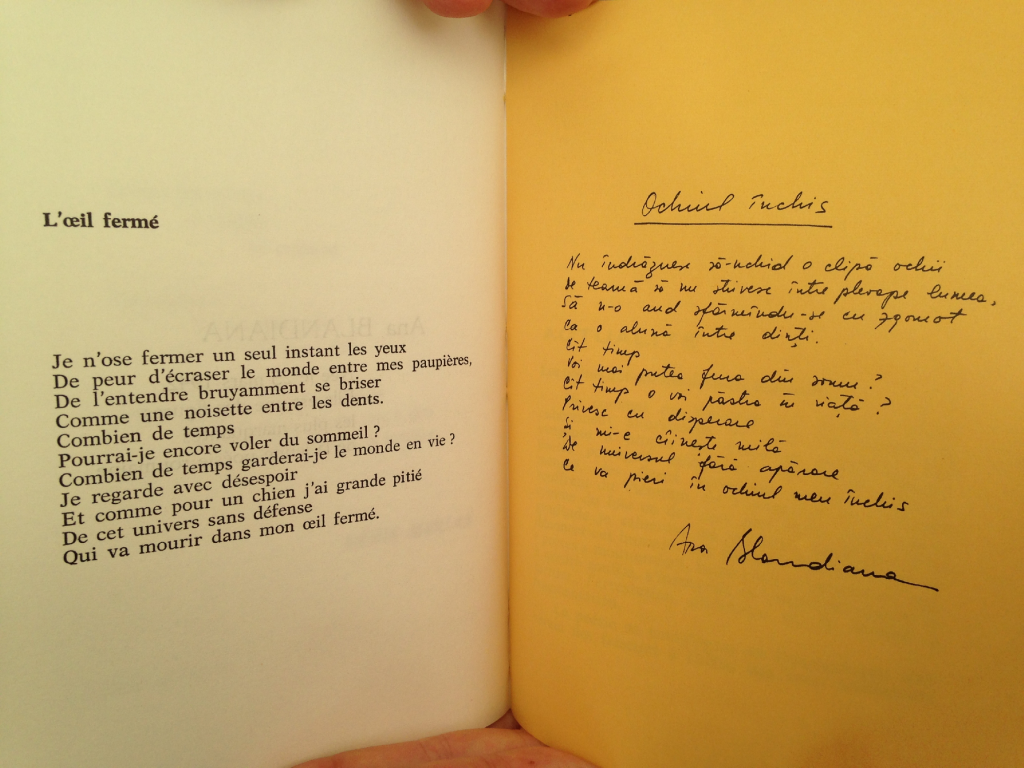 L'œil fermé
Je n'ose fermer un seul instant les yeux
De peur d'écraser le monde entre mes paupières,
De l'entendre bruyamment se briser
Comme une noisette entre les dents.
Combien de temps
Pourrai-je encore voler du sommeil ?
Combien de temps garderai-je le monde en vie ?
Je regarde avec désespoir
Et comme pour un chien j'ai grande pitié
De cet univers sans défense
Qui va mourir dans mon œil fermé.
Ochiul închis
Nu îndrăznesc să-nchid o clipă ochii
de teamă să nu strivesc între pleoape lumea,
Să n-o aud sfărmîndu-se cu zgomot
Ca o alună între dinți.
Cît timp
Voi mai putea fura din somn ?
Cît timp o voi păstra în viață ?
Privesc cu disperare
Și mi-e cîinește milă
De universul fără apărare
Ce va pieri în ochiul meu închis
Ana Blandiana